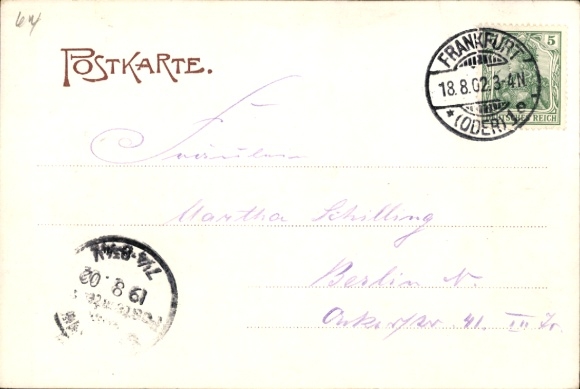 64
POSTKARTE.
5
DEUTSCHES REICH
FRANKFURT
18.8.02.3-4N.
* (ODER) 1 e *
Fräulein
Martha Schilling
Berlin N.
41. III Tr.
7¼-8½N.
19.8.02